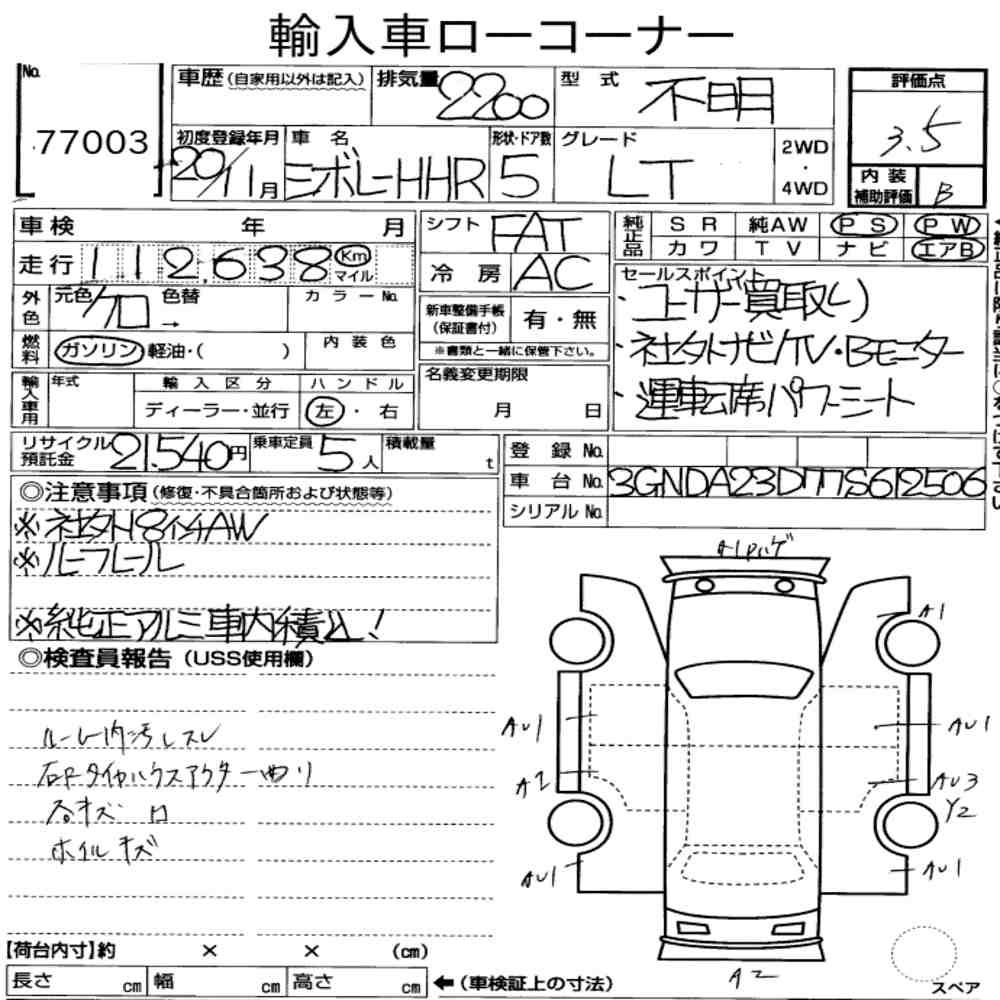 輸入車ローコーナー
No. 77003
車歴 (自家用以外は記入) 排気量 2200 型式 不明
初度登録年月 20/11月 車名 シボレーHHR 形状・ドア数 5 グレード LT 2WD・4WD
評価点 3.5
内装補助評価 B
車検 年 月
走行 112,638 Km マイル
外色 元色 クロ 色替 → カラーNo.
燃料 ガソリン 軽油・( ) 内装色
輸入車用 年式 輸入区分 ディーラー・並行 ハンドル 左・右
シフト FAT
冷房 AC
新車整備手帳 (保証書付) 有・無
※書類と一緒に保管下さい。
名義変更期限 月 日
純正品 SR 純AW PS PW
カワ TV ナビ エアB
セールスポイント
・ユーザー買取り
・社外ナビ/TV・Bモニター
・運転席パワーシート
リサイクル預託金 21,540円 乗車定員 5人 積載量 t
登録No.
車台No. 3GNDA23D77S612506
シリアルNo.
◎注意事項 (修復・不具合箇所および状態等)
※社外18インチAW
※純正アルミ車内積込!
◎検査員報告 (USS使用欄)
ルーム内汚レスレ
右Fタイヤハウスアウター曲り
各キズ凹
ホイルキズ
A1
AU1
AU1
A2
AU3
Y2
AU1
AU1
A2
【荷台内寸】約 × × (cm)
長さ cm 幅 cm 高さ cm ←(車検証上の寸法)
スペア